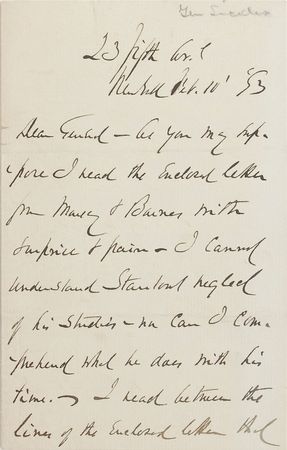 Gen Sickles
23 fifth Av. E
New York Feb. 10' 93
Dear General – As you may sup-
-pose I read the enclosed letter
from & Barnes with
surprise & pain – I cannot
understand neglect
of his studies – nor can I com-
prehend what he does with his
time. – I read between the
lines of the enclosed letter that